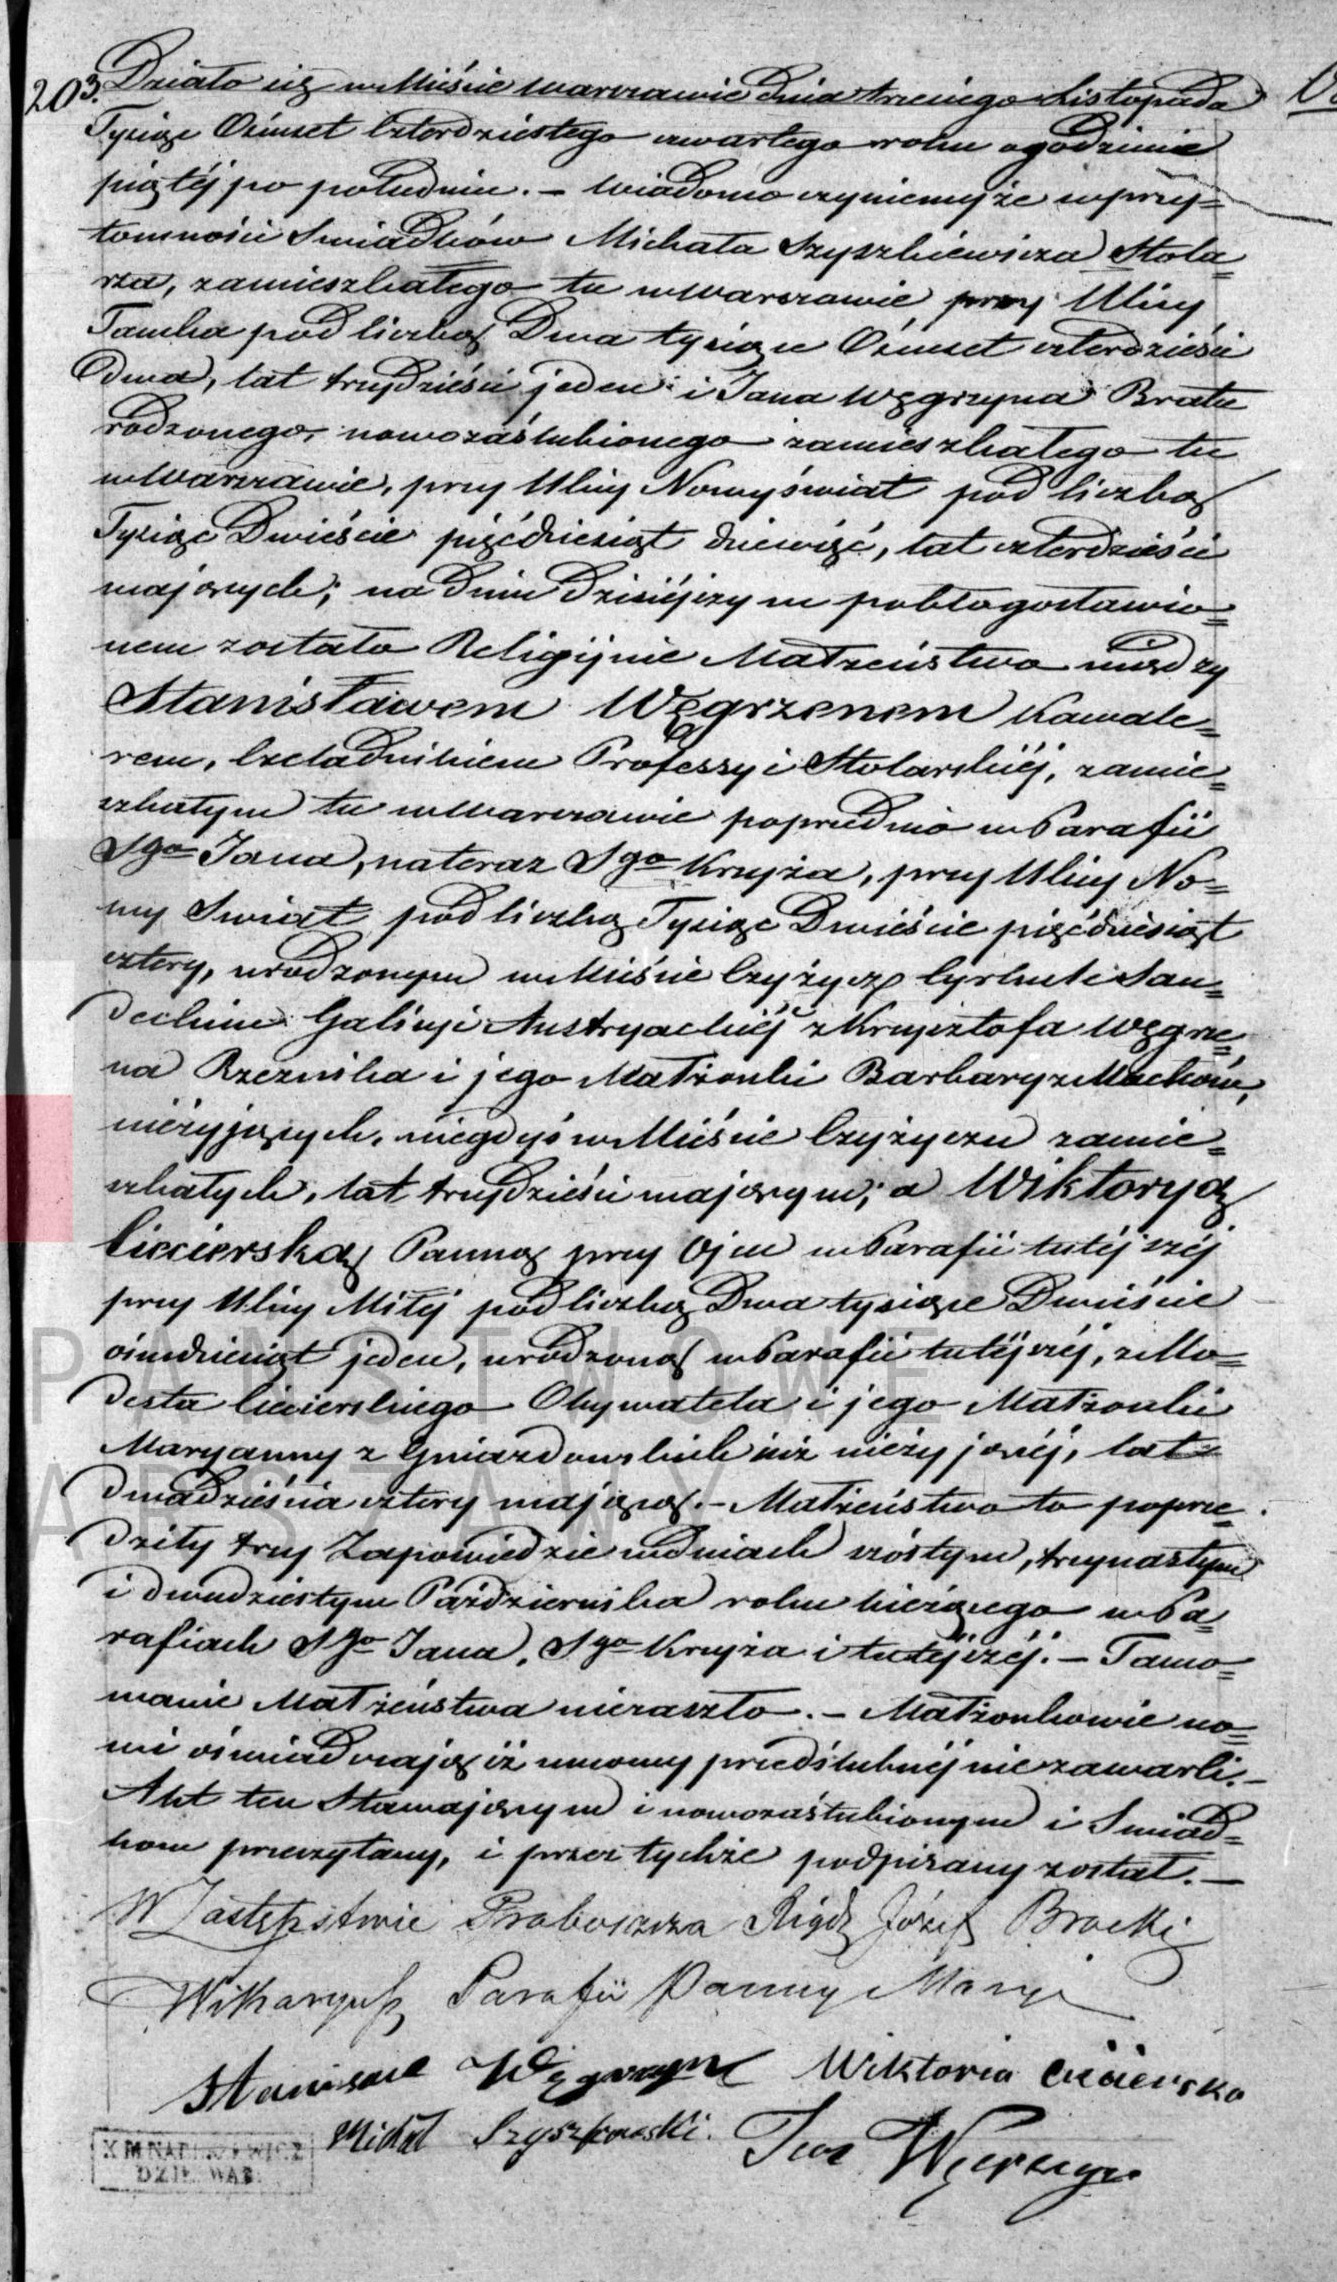 203. Działo się w Mieście Warszawie dnia trzeciego Listopada
Tysiąc Ośmset Czterdziestego czwartego roku o godzinie
piątéj po południu. – Wiadomo czyniemy że w przy=
tomności Swiadków Michała Szyszkiewicza Stola=
rza, zamieszkałego tu w Warszawie przy Ulicy
Tamka pod liczbą Dwa tysiące Ośmset czterdzieści
dwa, lat trzydzieści jeden i Jana Węgrzyna Brata
rodzonego nowozaślubionego zamieszkałego tu
w Warszawie, przy Ulicy Nowyświat pod liczbą
Tysiąc Dwieście pięćdziesiąt dziewięć, lat czterdzieści
mających; na dniu dzisiéjszym pobłogosławio=
nem zostało Religijnie Małżeństwo między
Stanisławem Węgrzenem Kawale=
rem, Czeladnikiem Professyi Stolarskiéj, zamie=
szkałym tu w Warszawie poprzednio w Parafii
Sgo Jana, na teraz Sgo Krzyża, przy Ulicy No=
wy Swiat pod liczbą Tysiąc Dwieście pięćdziesiąt
cztery, urodzonym w Mieście Czyżycz Cyrkule San=
deckim Galicyi Austryackiéj z Krzysztofa Węgrze=
na Rzeznika i jego Małżonki Barbary z Maćków,
nieżyjących, niegdyś w Mieście Czyżyczu zamie=
szkałych, lat trzydzieści mającym; a Wiktoryą
Ciecierską Panną przy Ojcu w Parafii tutéjszéj
przy Ulicy Miłéj pod liczbą Dwa tysiące Dwieście
ośmdziesiąt jeden, urodzoną w Parafii tutéjszéj, z Mo=
desta Ciecierskiego Obywatela i jego Małżonki
Maryanny z Gniazdowskich już nieżyjącéj, lat
dwadzieścia cztery mającą. – Małżeństwo to poprze=
dziły trzy Zapowiedzie w dniach szóstym, trzynastym
i dwudziestym Października roku bieżącego w Pa=
rafiach Sgo Jana, Sgo Krzyża i tutéjszéj. – Tamo=
wanie Małżeństwa nie zaszło. – Małżonkowie no=
wi oświadczają iż umowy przedślubnéj nie zawarli. –
Akt ten Stawającym i nowozaślubionym i Swiad=
kom przeczytany, i przez tychże podpisany został. –
W Zastępstwie Proboszcza Xiądz Józef Brocki
Wikaryusz Parafii Panny Maryi
Stanisław Węgrzyn Wiktoria Cicierska
Michał Szyszkowski. Jan Węgrzyn
DZIE. WAR.
PAŃSTWOWE
WARSZAWY